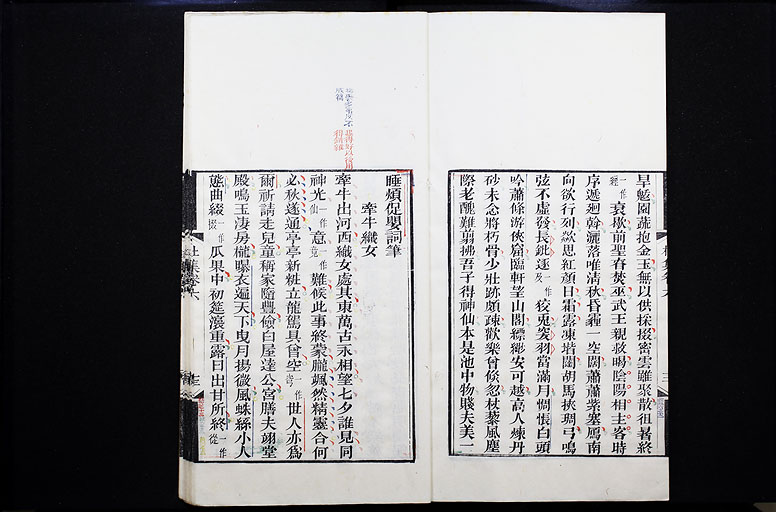 園蔬抱金玉無以供採掇密雲雖聚散徂暑終
一作經衰歇前聖眘焚巫武王親救暍陰陽相主客時
序遞迴斡灑落唯清秋昏霾一空闊蕭蕭紫塞鴈南
向欲行列欻思紅顏日霜露凍堦闥胡馬挾琱弓鳴
弦不虛發長鈚逐一作及狡兔突羽當滿月惆悵白頭
吟蕭條游俠窟臨軒望山閣縹緲安可越高人煉丹
砂未念將朽骨少壯跡頗疎歡樂曾倏忽杖藜風塵
際老醜難翦拂吾子得神仙本是池中物賤夫美一
睡煩促嬰詞筆
牽牛織女
牽牛出河西織女處其東萬古永相望七夕誰見同
神光一作仙意一作竟難候此事終蒙朧颯然精靈合何
必秋遂通亭亭新粧立龍駕具曾空世人亦爲
爾祈請走兒童稱家隨豐儉白屋達公宮膳夫翊堂
殿鳴玉淒房櫳曝衣遍天下曳月揚微風蛛絲小人
態曲綴瓜果中初筵裛重露日出甘所終一作從